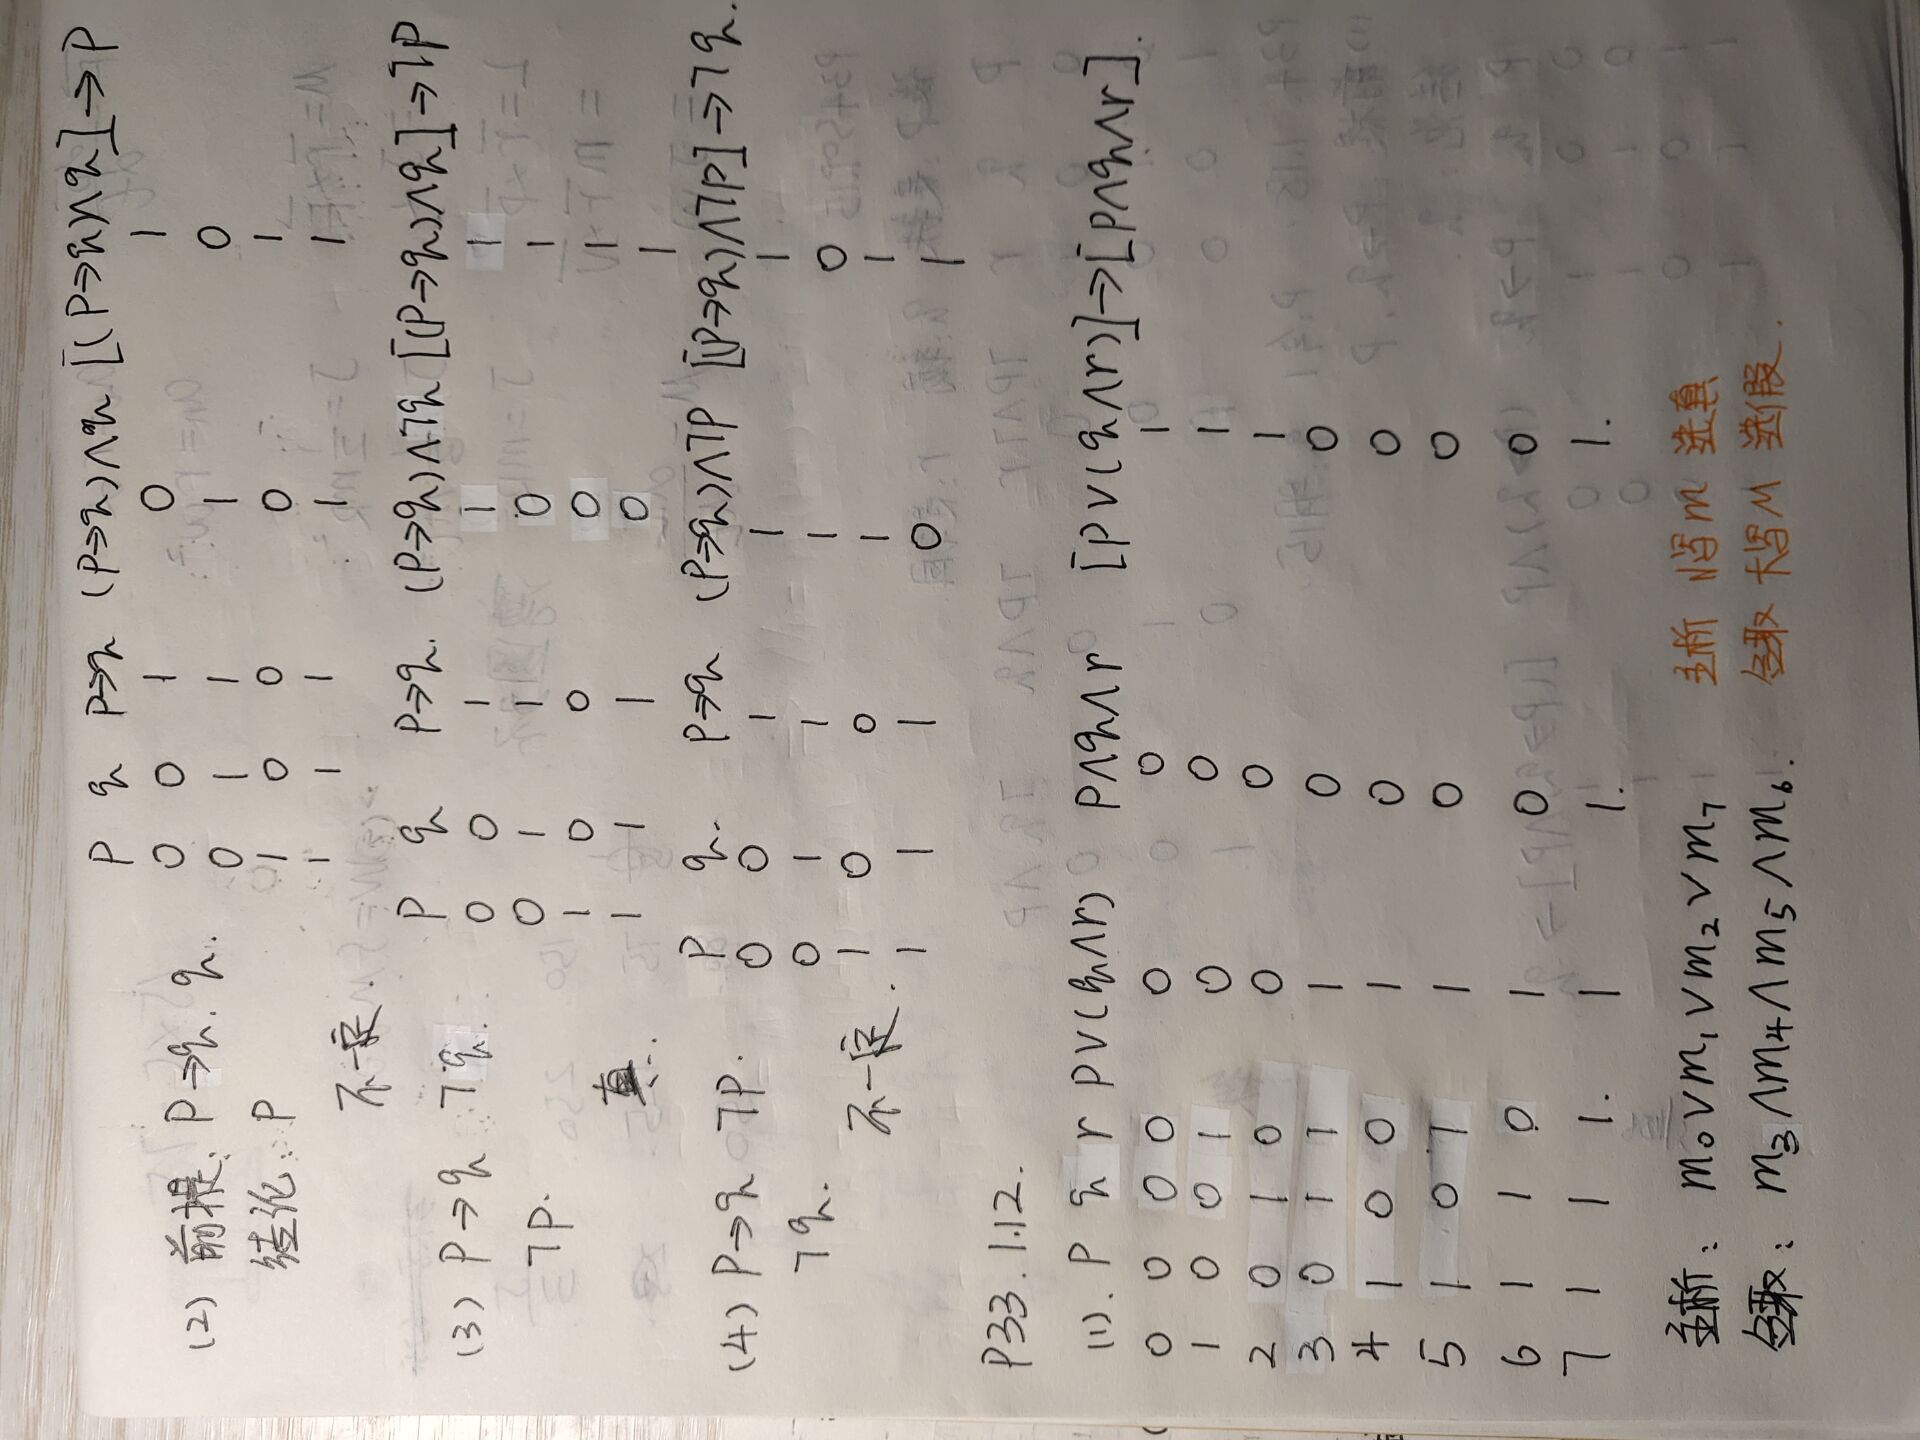 p q p→q (p→q)∧q [(p→q)∧q]→p
(2) 前提: p→q. q. 0 0 1 0 1
0 1 1 1 0
结论: p 1 0 0 0 1
1 1 1 1 1
不一定.
p q p→q. (p→q)∧¬q [(p→q)∧q]→¬p
(3) p→q ¬q. 0 0 1 1 1
¬p. 0 1 1 0 1
1 0 0 0 1
真. 1 1 1 0 1
p q. p→q (p→q)∧¬p [(p→q)∧¬p]→¬q.
(4) p→q ¬p. 0 0 1 1 1
¬q. 0 1 1 1 0
不一定. 1 0 0 1 1
1 1 1 0 1
P33. 1.12.
(1). p q r p∨(q∧r) p∧q∧r [p∨(q∧r)]→[p∧q∧r].
0 0 0 0 0 0 1
1 0 0 1 0 0 1
2 0 1 0 0 0 1
3 0 1 1 1 0 0
4 1 0 0 1 0 0
5 1 0 1 1 0 0
6 1 1 0 1 0 0
7 1 1 1. 1 1. 1.
主析: m₀∨m₁∨m₂∨m₇ 主析 小写m 选真
合取: m₃∧m₄∧m₅∧m₆. 合取 大写M 选假.